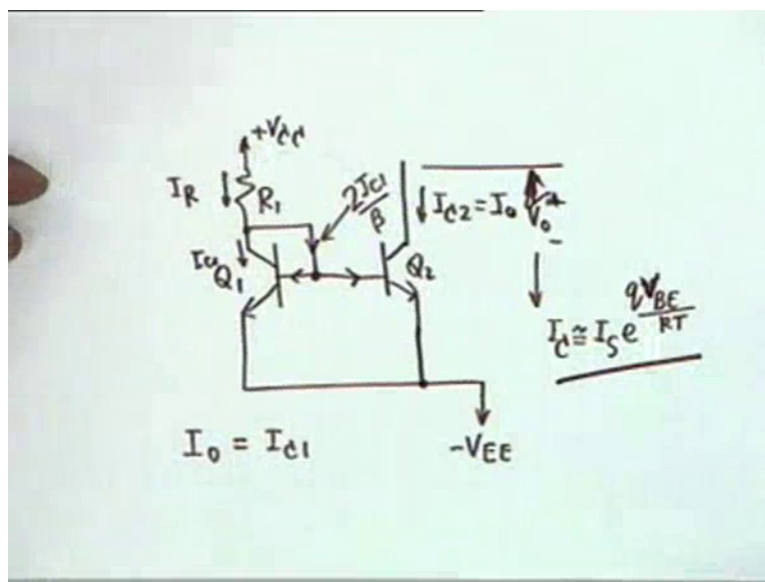 +VCC
IR
R1
2IC1/β
IC2 = I0
+
V0
-
IC1
Q1
Q2
IC ≅ IS e^(qVBE/kT)
I0 = IC1
-VEE